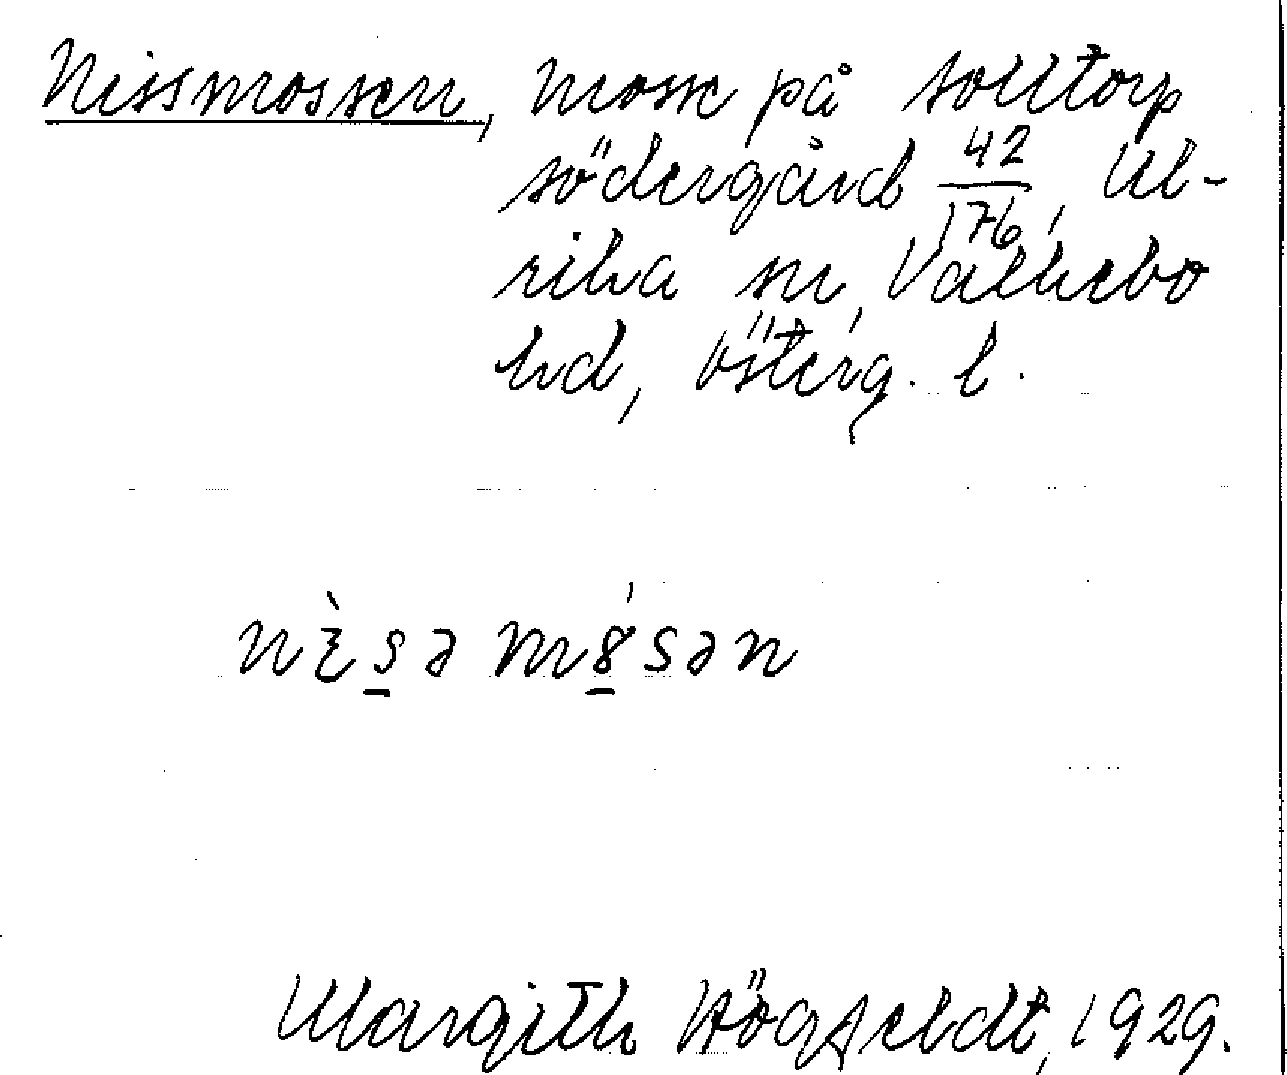 Nissmossen, mosse på Solltorp
södergård 42/176, Ul-
rika sn, Valkebo
hd, Österg. l.
nὲsə mǿsən
Margith Högfeldt, 1929.